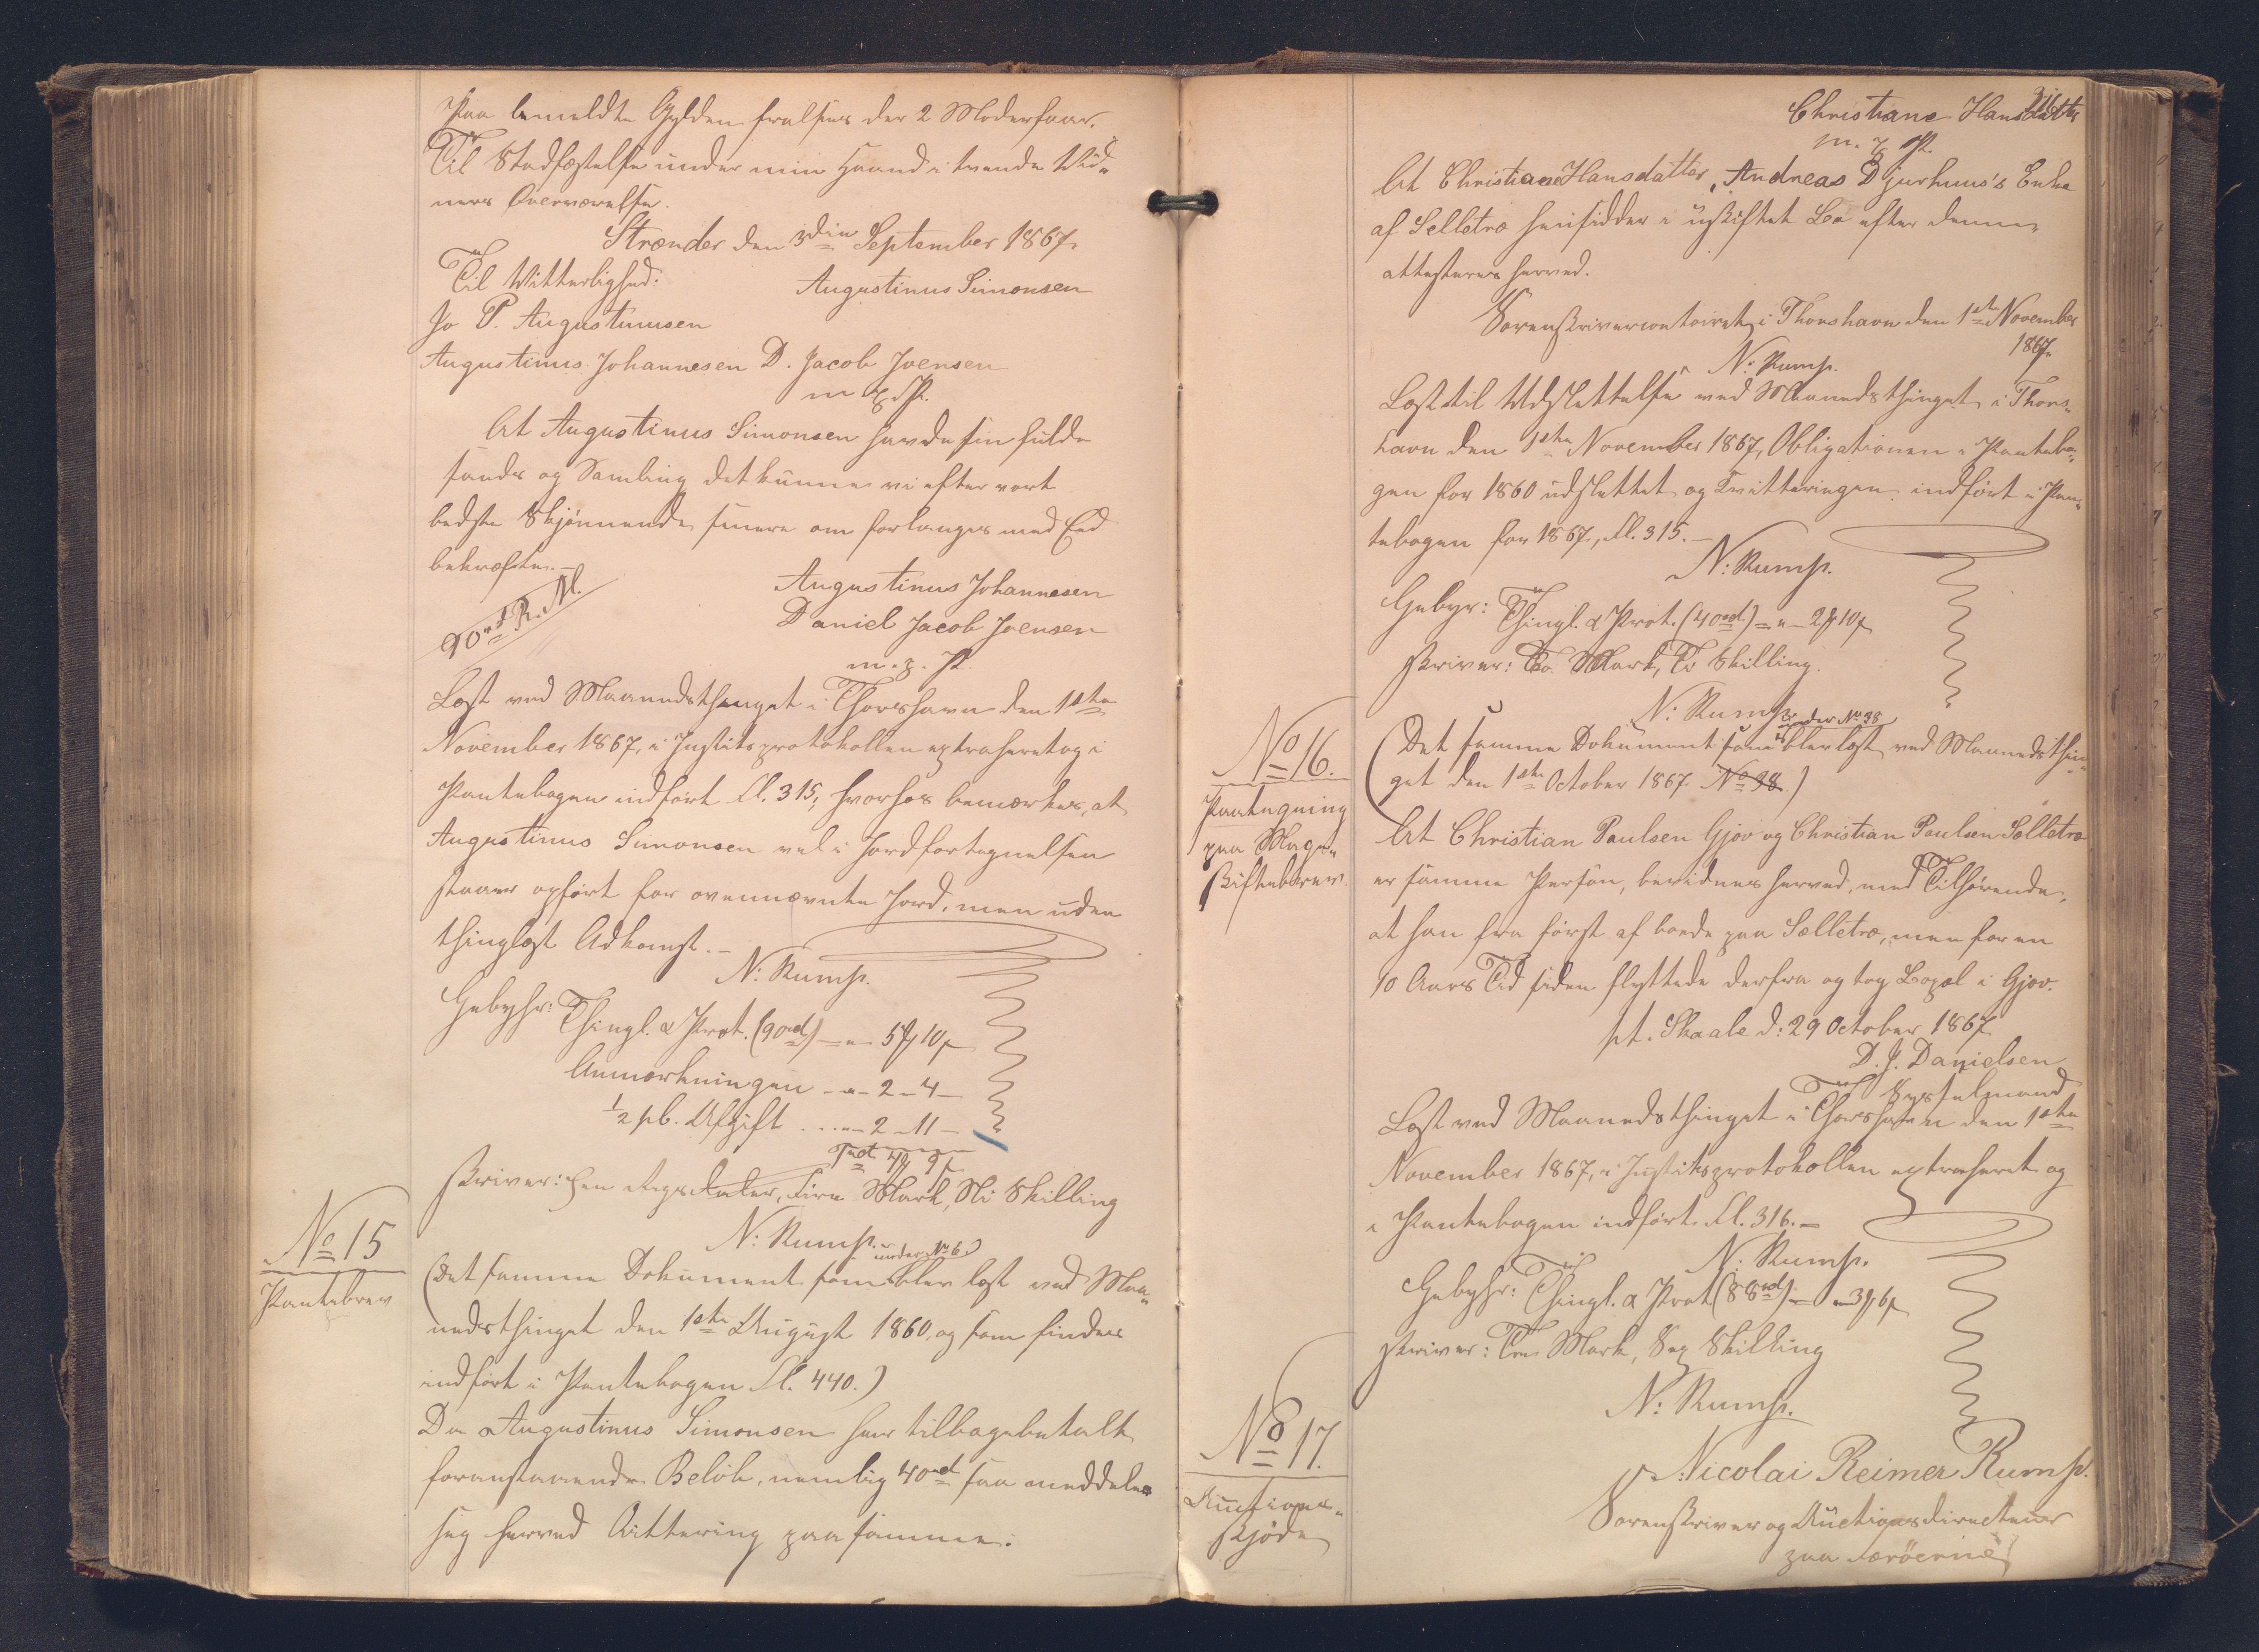 Paa bemeldte Gylden fralsees der 2 Moderfaar.
Til Stadfæstelse under min Haand i tvende Vid„
ners Overværelse.
Strænder den 3die September 1867.
Til Vitterlighed:
Augustinus Simonsen
Jo P. Augustinussen
Augustinus Johannesen D. Jacob Joensen
m. p. P.
At Augustinus Simonsen havde sin fulde
Sands og Samling det kunne vi efter vort
bedste Skjønnende senere om forlanges med Eed
bekræfte. —
90rd R. M.
Augustinus Johannesen
Daniel Jacob Joensen
m. p. P.
Læst ved Maanedsthinget i Thorshavn den 1ste
November 1867, i Justitsprotokollen extraheret og i
Pantebogen indført Fl. 315, hvorhos bemærkes, at
Augustinus Simonsen vel i Jordfortegnelsen
staaer opført for ovennævnte Jord, men uden
thinglæst Adkomst. —
N: Rump.
Gebyhr: Thingl. & Prot. (90rd) — „ — 5 ℳ 10 β
Anmærkningen — „ — 2 — 4 —
1/2 pb. Afgift ... „ — 2 — 11 —
1rd 4 ℳ 9 β
skriver: Een Rigsdaler, Fire Mark, Ni Skilling
N: Rump.
No 15
Pantebrev
under No 6
(Det samme Dokument som blev læst ved Maa„
nedsthinget den 1ste August 1860, og som findes
indført i Pantebogen Fl. 440.)
Da Augustinus Simonsen har tilbagebetalt
foranstaaende Beløb, nemlig 40rd saa meddeles
jeg herved Qvittering paa samme.
316
Christiane Hansdatter
m. p. P.
At Christiane Hansdatter, Andreas Djurhuus's Enke
af Selletræ hensidder i uskiftet Bo efter denne,
attesteres herved.
Sorenskrivercontoiret i Thorshavn den 1ste November
1867.
N: Rump.
Læst til Udslettelse ved Maanedsthinget i Thors„
havn den 1ste November 1867, Obligationen i Pantebo„
gen for 1860 udslettet og Qvitteringen indført i Pan„
tebogen for 1867, Fl. 315. —
N: Rump.
Gebyr: Thingl. & Prot. (40rd) — „ — 2 ℳ 10 β
skriver: To Mark, Ti Skilling.
N: Rump.
No 16.
Paategning
paa Mage„
skiftebrev.
under No 38
(Det samme Dokument som blev læst ved Maanedsthin„
get den 1ste October 1867 No 38.)
At Christian Poulsen Gjov og Christian Poulsen Selletræ
er samme Person, bevidnes herved, med Tilhørende,
at han fra først af boede paa Selletræ, men for en
10 Aars Tid siden flyttede derfra og tog Bopæl i Gjov.
pt. Skaale d: 29 October 1867
D. J. Danielsen
Sysselmand
Læst ved Maanedsthinget i Thorshavn den 1ste
November 1867, i Justitsprotokollen extraheret og
i Pantebogen indført Fl. 316. —
N: Rump.
Gebyhr: Thingl. & Prot (88rd) — „ — 3 ℳ 6 β
skriver: Tre Mark, Sex Skilling
N: Rump.
No 17.
Auctions„
skjøde
Nicolai Reimer Rump.
Sorenskriver og Auctionsdirecteur
paa Færöerne